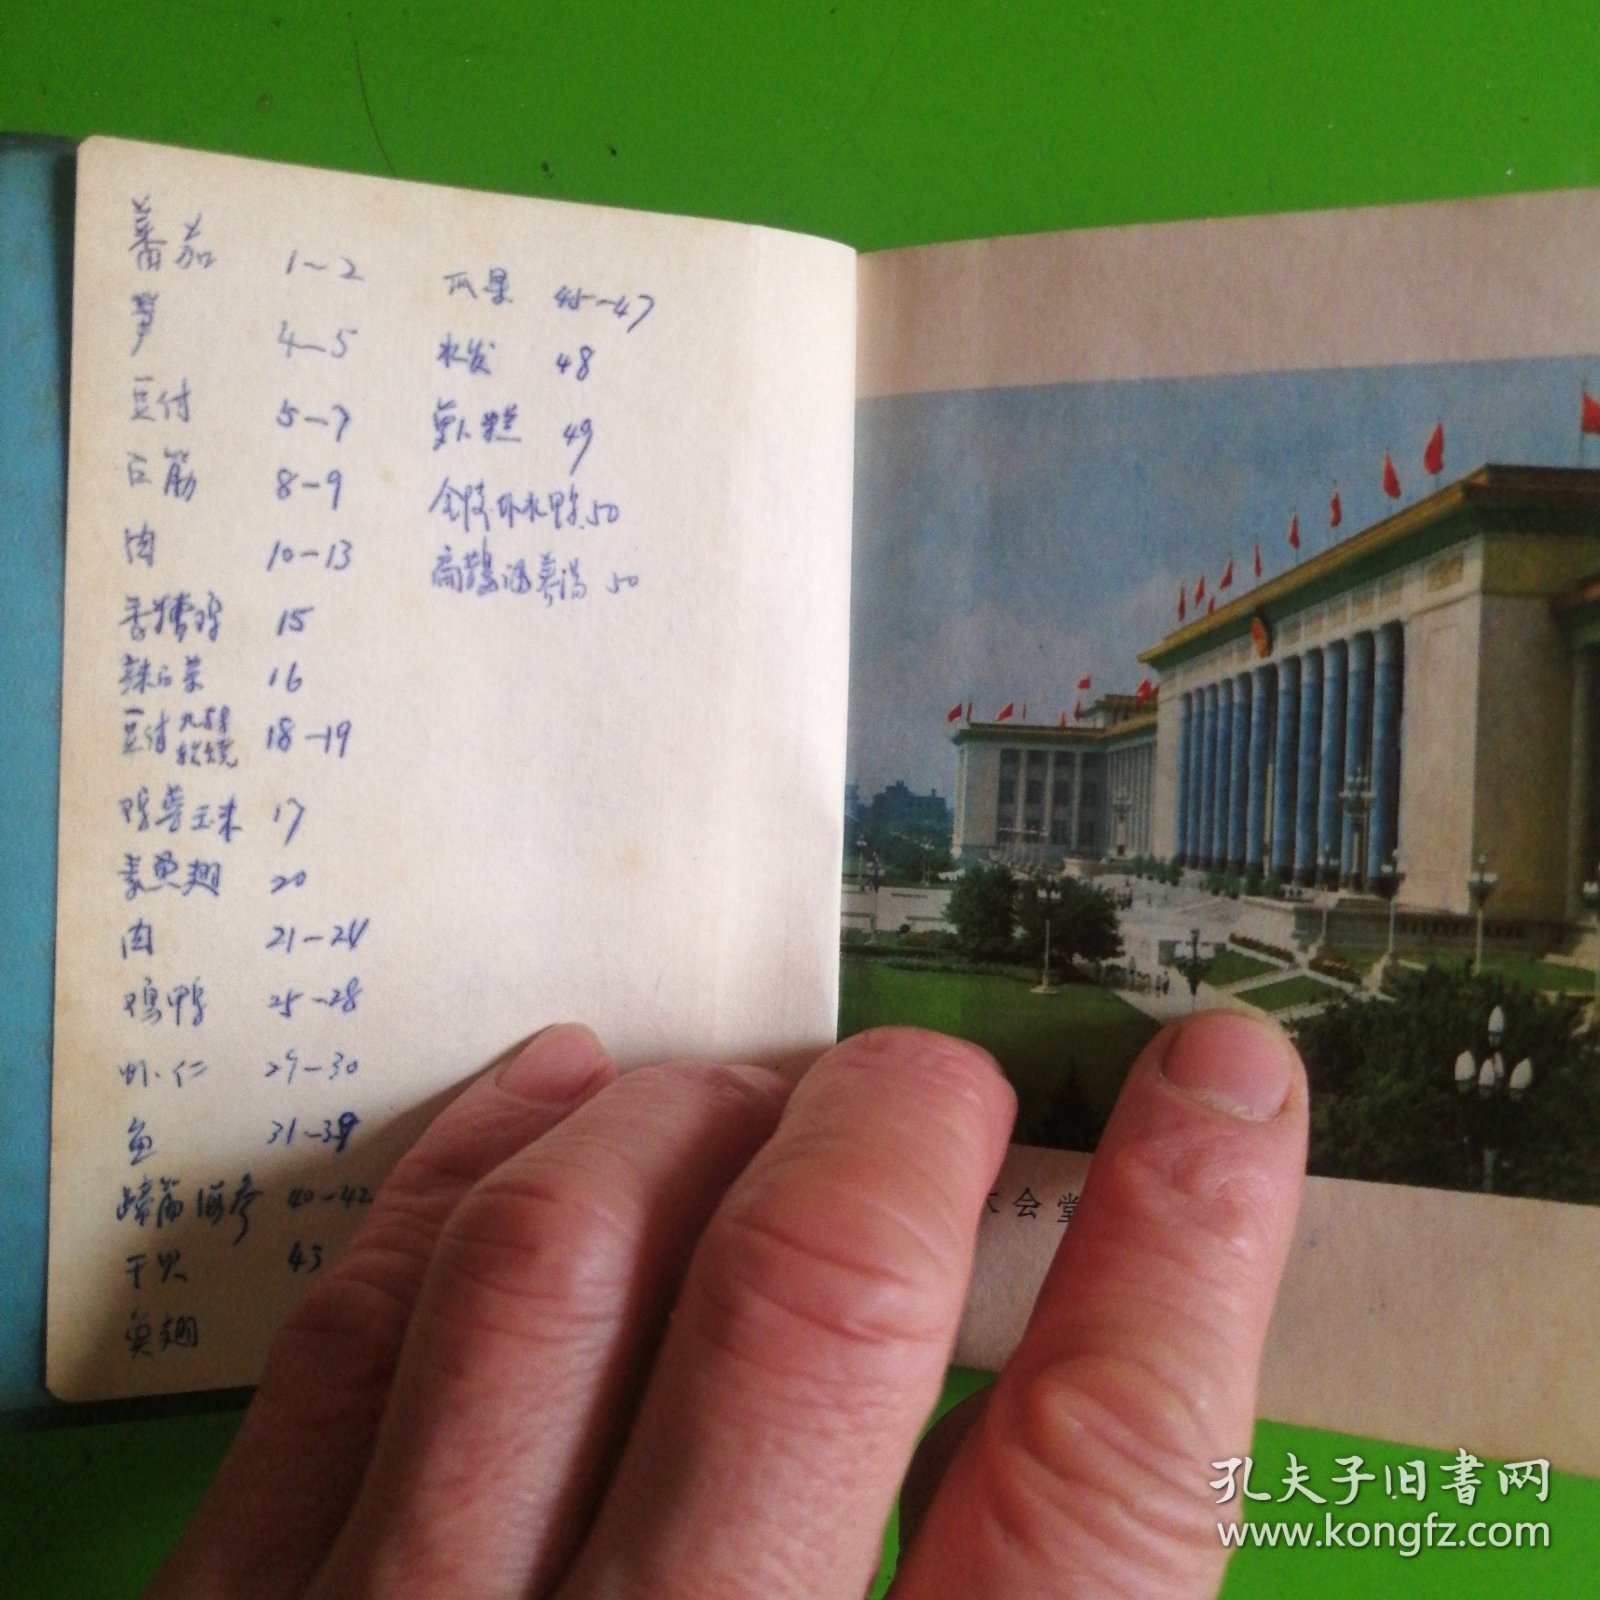 番茄 1—2
笋 4—5
豆付 5—7
面筋 8—9
肉 10—13
香糟鸡 15
辣白菜 16
豆付 18—19
鸡蓉玉米 17
素鱼翅 20
肉 21—24
鸡鸭 25—28
虾仁 29—30
鱼 31—39
蹄筋海参 40—42
干贝 43
鱼翅
瓜果 45—47
水发 48
萝卜糕 49
金陵水鸭 50
汤 50
大会堂
孔夫子旧书网
www.kongfz.com